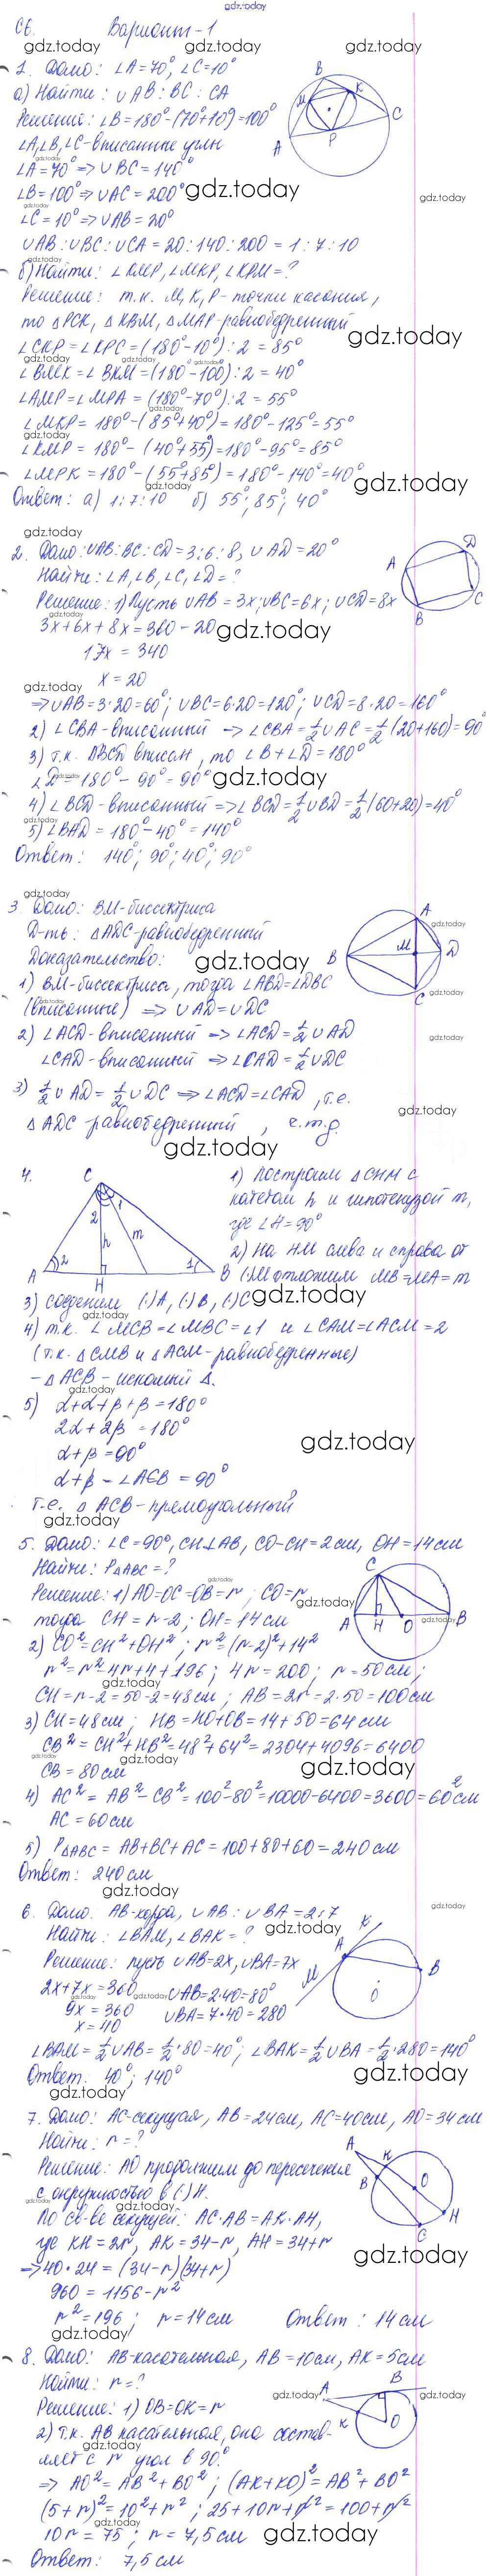 gdz.today
С6. Вариант-1
gdz.today gdz.today gdz.today
1. Дано: ∠A=70°, ∠C=10°
а) Найти: ∪AB : BC : CA
Решение: ∠B=180°-(70°+10°)=100°
∠A, ∠B, ∠C-вписанные углы
∠A=70° => ∪BC=140°
∠B=100° => ∪AC=200°
gdz.today
∠C=10° => ∪AB=20°
∪AB : ∪BC : ∪CA = 20 : 140 : 200 = 1 : 7 : 10
б) Найти: ∠KMP, ∠MKP, ∠KPM=?
Решение: т.к. M, K, P-точки касания,
то △PCK, △KBM, △MAP-равнобедренный
gdz.today
∠CKP=∠KPC=(180°-10°):2=85°
∠BMK=∠BKM=(180°-100°):2=40°
∠AMP=∠MPA=(180°-70°):2=55°
∠MKP=180°-(85°+40°)=180°-125°=55°
∠KMP=180°-(40°+55°)=180°-95°=85°
∠MPK=180°-(55°+85°)=180°-140°=40°
gdz.today
Ответ: а) 1:7:10 б) 55°; 85°; 40°
gdz.today
2. Дано: ∪AB:BC:CD=3:6:8, ∪AD=20°
Найти: ∠A, ∠B, ∠C, ∠D=?
Решение: 1) Пусть ∪AB=3x; ∪BC=6x; ∪CD=8x
3x+6x+8x=360-20
gdz.today
17x=340
x=20
=> ∪AB=3·20=60°; ∪BC=6·20=120°; ∪CD=8·20=160°
2) ∠CBA-вписанный => ∠CBA=1/2∪AC=1/2(20+160)=90°
3) т.к. ABCD вписан, то ∠B+∠D=180°
∠D=180°-90°=90°
gdz.today
4) ∠BCD-вписанный => ∠BCD=1/2∪BD=1/2(60+20)=40°
5) ∠BAD=180°-40°=140°
Ответ: 140°; 90°; 40°; 90°
gdz.today
3. Дано: BM-биссектриса
Д-ть: △ADC-равнобедренный
Доказательство:
gdz.today
1) BM-биссектриса, тогда ∠ABD=∠DBC
(вписанные) => ∪AD=∪DC
2) ∠ACD-вписанный => ∠ACD=1/2∪AD
∠CAD-вписанный => ∠CAD=1/2∪DC
3) 1/2∪AD=1/2∪DC => ∠ACD=∠CAD, т.е.
△ADC-равнобедренный, ч.т.д.
gdz.today
4. 1) Построим △CHM с
катетом h и гипотенузой m,
где ∠H=90°
2) На HM слева и справа от
(·)M отложим MB=MA=m
3) Соединим (·)A, (·)B, (·)C
gdz.today
4) т.к. ∠MCB=∠MBC=∠1 и ∠CAM=∠ACM=2
(т.к. △CMB и △ACM-равнобедренные)
- △ACB-искомый △.
5) α+α+β+β=180°
2α+2β=180°
α+β=90°
gdz.today
α+β=∠ACB=90°
т.е. △ACB-прямоугольный
gdz.today
5. Дано: ∠C=90°, CH⊥AB, CO-CH=2см, OH=14см
Найти: P△ABC=?
Решение: 1) AO=OC=OB=r; CO=r
тогда CH=r-2; OH=14см
2) CO²=CH²+OH²; r²=(r-2)²+14²
r²=r²-4r+4+196; 4r=200; r=50см;
CH=r-2=50-2=48см; AB=2r=2·50=100см
3) CH=48см; HB=HO+OB=14+50=64см
CB²=CH²+HB²=48²+64²=2304+4096=6400
CB=80см
gdz.today
4) AC²=AB²-CB²=100²-80²=10000-6400=3600=60²см
AC=60см
5) P△ABC=AB+BC+AC=100+80+60=240см
Ответ: 240см
gdz.today
6. Дано: AB-хорда, ∪AB : ∪BA=2:7
Найти: ∠BAM, ∠BAK=?
Решение: пусть ∪AB=2x, ∪BA=7x
2x+7x=360 ∪AB=2·40=80°
9x=360 ∪BA=7·40=280
x=40
∠BAM=1/2∪AB=1/2·80=40°; ∠BAK=1/2∪BA=1/2·280=140°
Ответ. 40°; 140°
gdz.today
7. Дано: AC-секущая, AB=24см, AC=40см, AO=34см
Найти: r=?
Решение: AO продолжим до пересечения
с окружностью в (·)H.
По св-ве секущей: AC·AB=AK·AH,
где KH=2r, AK=34-r, AH=34+r
gdz.today
=> 40·24=(34-r)(34+r)
960=1156-r²
r²=196; r=14см Ответ: 14см
gdz.today
8. Дано: AB-касательная, AB=10см, AK=5см
Найти: r=?
Решение: 1) OB=OK=r
2) т.к. AB касательная, она состав-
ляет с r угол в 90°.
=> AO²=AB²+BO²; (AK+KO)²=AB²+BO²
(5+r)²=10²+r²; 25+10r+r²=100+r²
10r=75; r=7,5см
gdz.today
Ответ: 7,5см